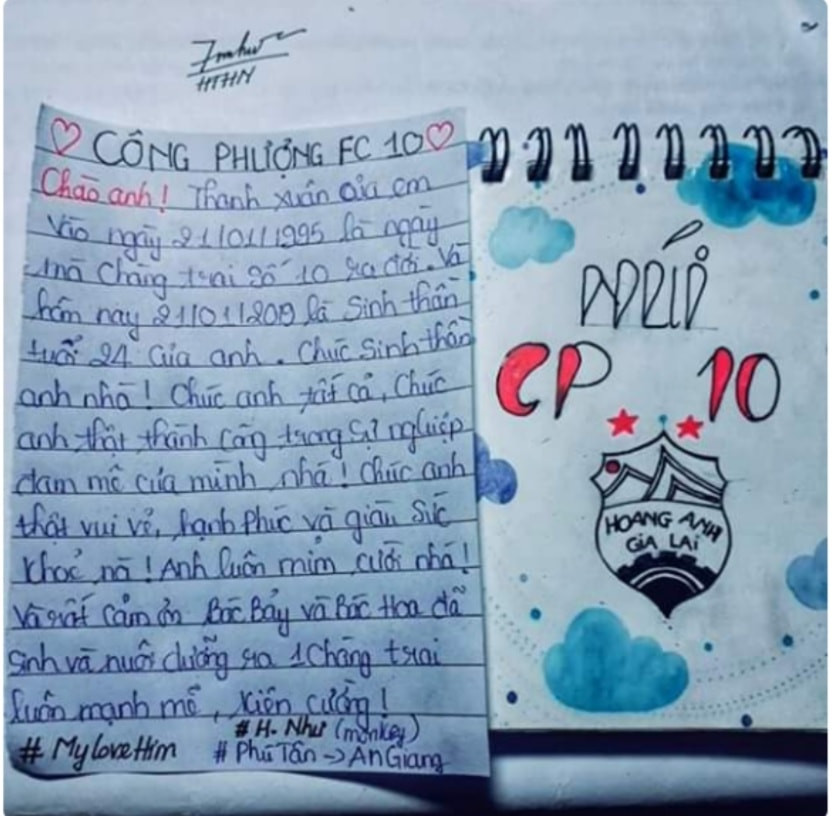 HTHN
CÔNG PHƯỢNG FC 10
Chào anh! Thanh xuân của em
Vào ngày 21/01/1995 là ngày
mà chàng trai số 10 ra đời. Và
hôm nay 21/01/2019 là Sinh thần
tuổi 24 của anh. Chúc Sinh thần
anh nhá! Chúc anh tất cả, Chúc
anh thật thành công trong sự nghiệp
đam mê của mình nhá! Chúc anh
thật vui vẻ, hạnh phúc và giàu sức
khoẻ nà! Anh luôn mỉm cười nhá!
Và rất cảm ơn Bác Bảy và Bác Hoa đã
sinh và nuôi dưỡng ra 1 Chàng trai
luôn mạnh mẽ, kiên cường!
# My love Him # H. Như (monkey)
# Phú Tân -> An Giang
CP 10
HOANG ANH
GIA LAI